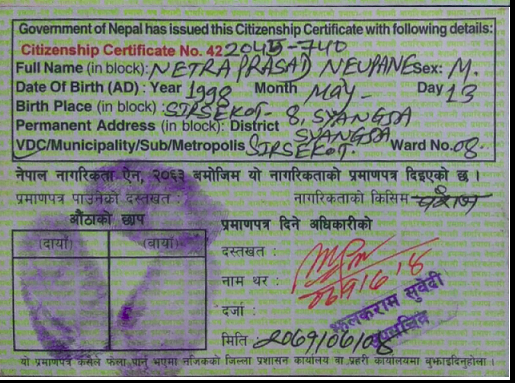 Government of Nepal has issued this Citizenship Certificate with following details:
Citizenship Certificate No. 422045-740
Full Name (in block): NETRA PRASAD NEUPANE Sex: M.
Date Of Birth (AD) : Year 1998 Month MAY Day 13
Birth Place (in block) : SIRSEKOT- 8, SYANGJA
Permanent Address (in block): District SYANGJA
VDC/Municipality/Sub/Metropolis SIRSEKOT. Ward No. 08.
नेपाल नागरिकता ऐन, २०६३ बमोजिम यो नागरिकताको प्रमाणपत्र दिइएको छ ।
प्रमाणपत्र पाउनेको दस्तखत : नागरिकताको किसिम वंशज
औंठाको छाप
(दायाँ) (बायाँ)
प्रमाणपत्र दिने अधिकारीको
दस्तखत :
नाम थर :
दर्जा :
मिति 2069/06/08
यो प्रमाणपत्र कसैले फेला पारेमा नजिकको जिल्ला प्रशासन कार्यालय वा प्रहरी कार्यालयमा बुझाइदिनुहोला ।